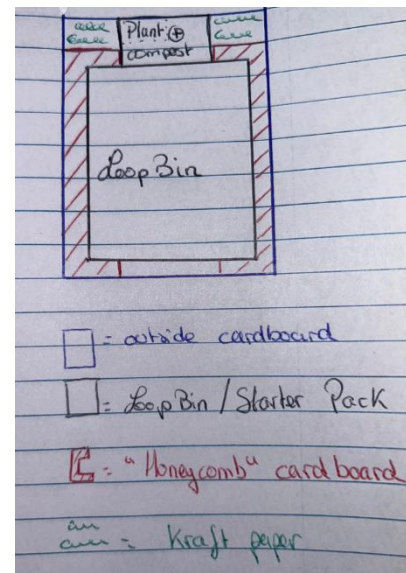 Plant ⊕
compost
LoopBin
= outside cardboard
= LoopBin / Starter Pack
= "Honeycomb" cardboard
= Kraft paper